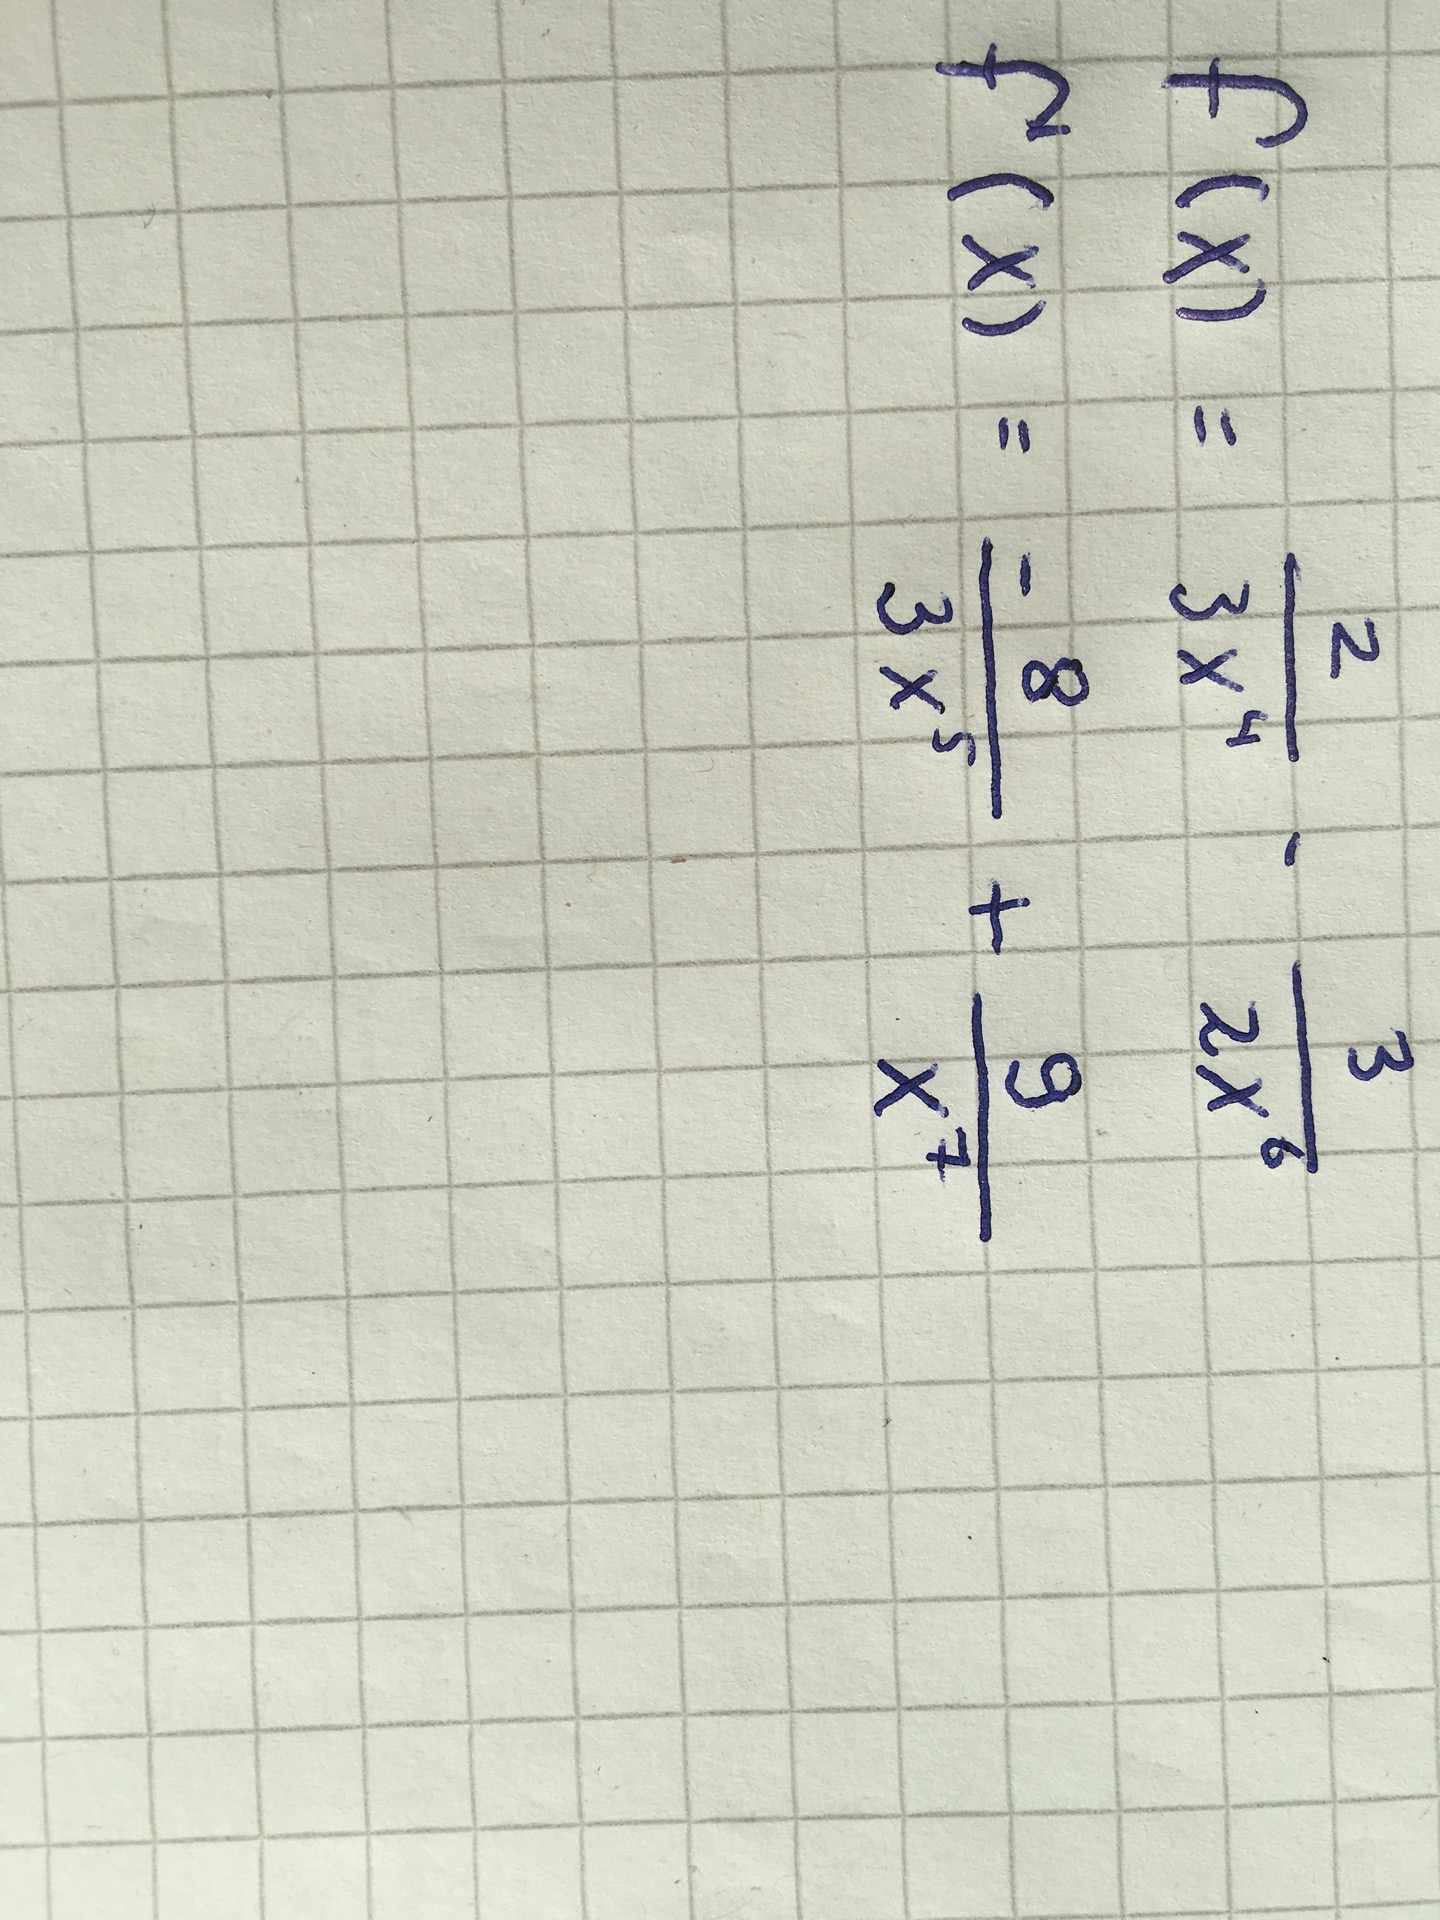 f(x) = 2/3x⁴ - 3/2x⁶
f'(x) = -8/3x⁵ + 9/x⁷